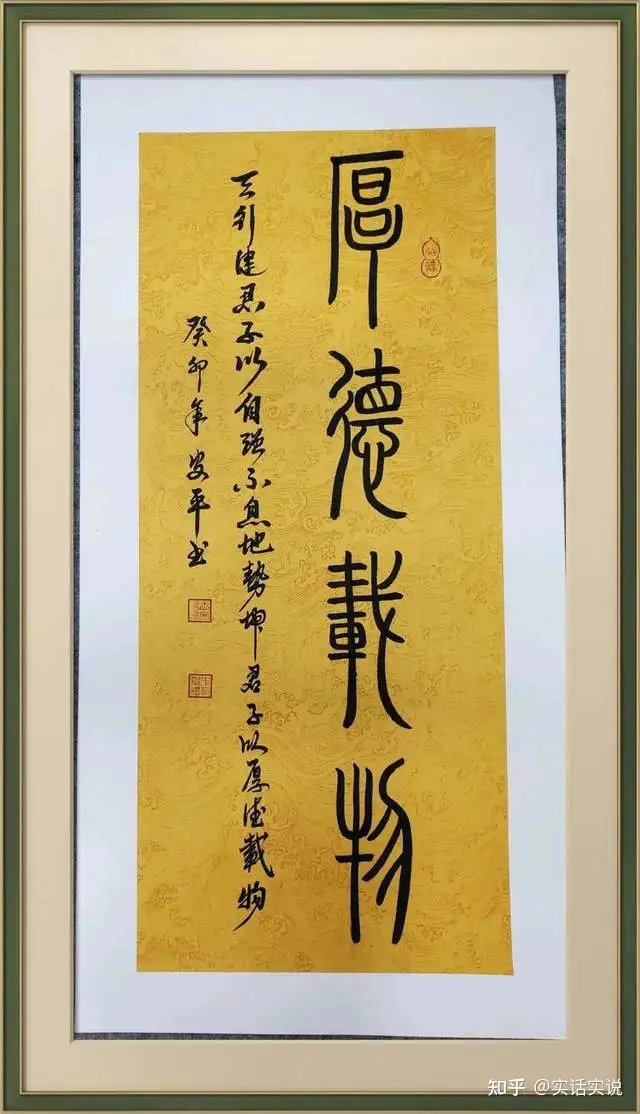 厚德載物
天行健君子以自强不息地勢坤君子以厚德載物
癸卯年安平书
知乎 @实话实说